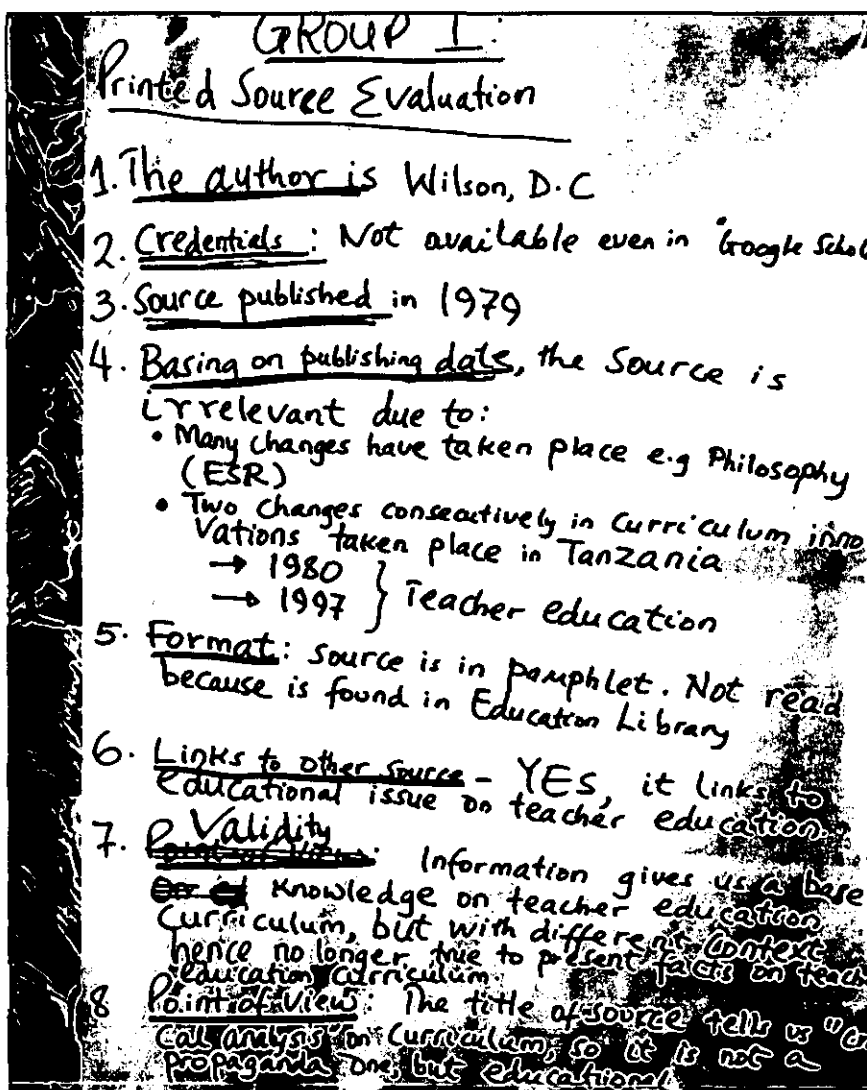 GROUP I:
Printed Source Evaluation
1. The author is Wilson, D.C
2. Credentials: Not available even in "Google Schol
3. Source published in 1979
4. Basing on publishing date, the Source is
irrelevant due to:
• Many changes have taken place e.g Philosophy
(ESR)
• Two changes consecutively in Curriculum inno
Vations taken place in Tanzania
→ 1980
→ 1997 } Teacher education
5. Format: Source is in pamphlet. Not read
because is found in Education Library
6. Links to other source - YES, it links to
educational issue on teacher education.
7. Validity
Point of View: Information gives us a base
Knowledge on teacher education
Curriculum, but with different context
hence no longer true to present facts on teach
education curriculum
8 Point of View: The title of source tells us "Cri
cal analysis on Curriculum, so it is not a
propaganda one, but educational.